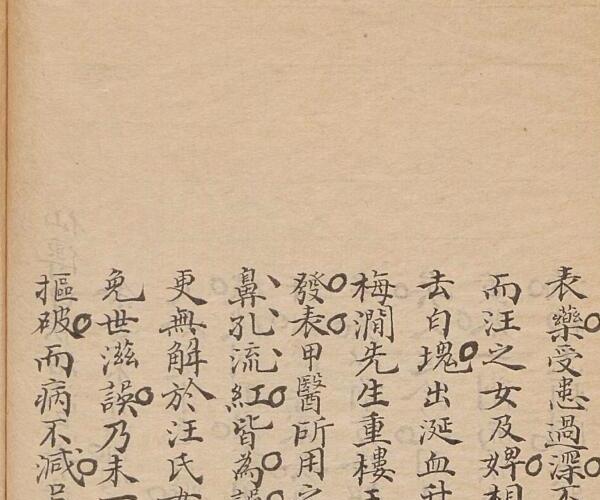 表藥受患過深
而汪之女及婢相
去白塊出涎血
梅澗先生重樓玉
發表甲醫所用之
鼻孔流紅皆為誤
更無解於汪氏
免世滋誤乃未
摳破而病不減